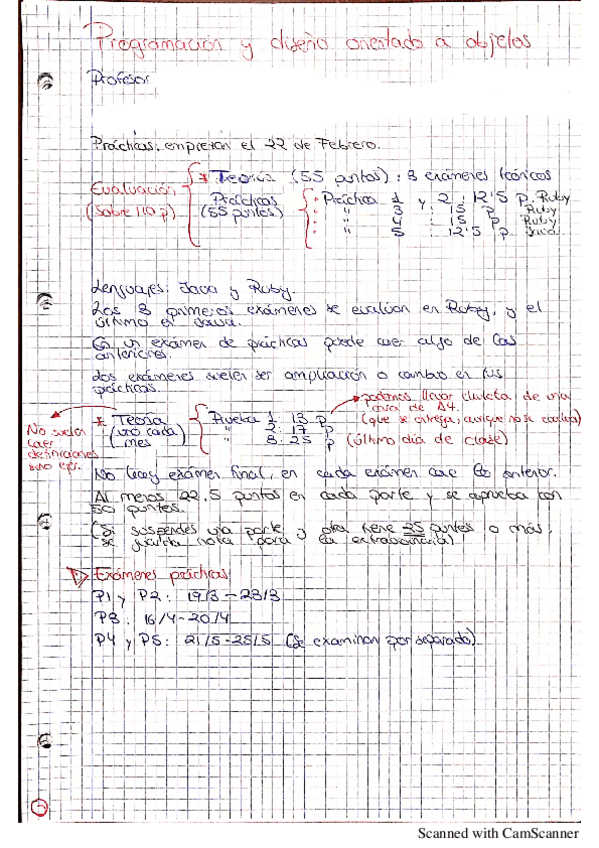 Programación y diseño orientado a objetos
Profesor
Prácticas: empiezan el 22 de Febrero.
Evaluación (sobre 110 p)
* Teoría (55 puntos): 3 exámenes teóricos
Prácticas (55 puntos)
· Práctica 1 y 2: 12'5 p. Ruby
· " 3 : 15 p Ruby
· " 4 : 15 p Ruby
· " 5 : 12'5 p. Java
Lenguajes: Java y Ruby.
Los 3 primeros exámenes se evalúan en Ruby, y el
último en Java.
En un exámen de prácticas puede caer algo de las
anteriores.
Los exámenes suelen ser ampliación o cambio en tus
prácticas.
* Teoría
(uno cada
mes
Prueba 1: 13 p
" 2: 17 p
" 3: 25 p (último día de clase)
podemos llevar chuleta de una
cara de A4.
(que se entrega, aunque no se evalúa)
No suelen
caer
definiciones
sino ejs.
No hay exámen final, en cada exámen cae lo anterior.
Al menos 22,5 puntos en cada parte y se aprueba con
50 puntos.
(Si suspendes una parte y otra tiene 25 puntos o más,
se guarda nota para la extraordinaria)
Exámenes prácticas
P1 y P2: 19/3-23/3
P3: 16/4-20/4
P4 y P5: 21/5-25/5 (Se examinan por separado).
Scanned with CamScanner